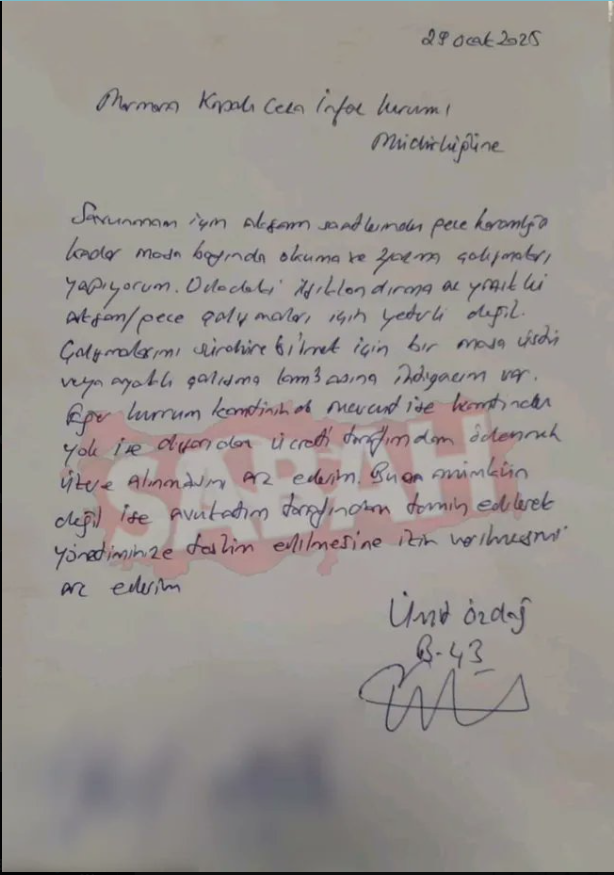 29 Ocak 2025
Marmara Kapalı Ceza İnfaz Kurumu
Müdürlüğüne
Savunmam için akşam saatlerinden gece karanlığa
kadar masa başında okuma ve yazma çalışmaları
yapıyorum. Odadaki ışıklandırma
akşam/gece çalışmaları için yeterli değil.
Çalışmalarımı sürdürebilmek için bir masa üstü
veya ayaklı çalışma lambasına ihtiyacım var.
Eğer kurum kantininde mevcut ise kantinden
yok ise dışarıdan ücreti tarafımdan ödenmek
üzere alınmasını arz ederim. Bu mümkün
değil ise avukatım tarafından temin edilerek
yönetiminize teslim edilmesine izin verilmesini
arz ederim
Ümit Özdağ
B-43
SABAH